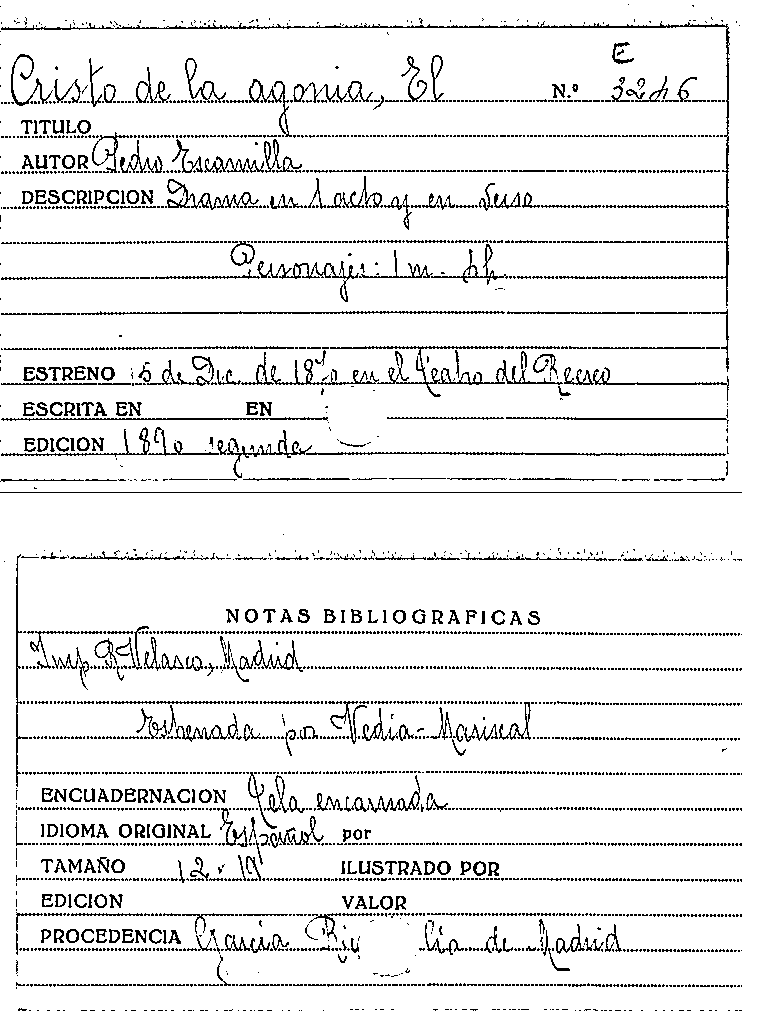 E
Cristo de la agonia, El N.º 3246
TITULO
AUTOR Pedro Escamilla
DESCRIPCION Drama en 1 acto y en verso
Personajes: 1 m. 4 h.
ESTRENO 15 de Dic. de 1870 en el Teatro del Recreo
ESCRITA EN EN
EDICION 1890 segunda
NOTAS BIBLIOGRAFICAS
Imp. R Velasco, Madrid
Estrenada por Vedia-Mariscal
ENCUADERNACION Tela encarnada
IDIOMA ORIGINAL Español por
TAMAÑO 12 x 19 ILUSTRADO POR
EDICION VALOR
PROCEDENCIA García de Madrid